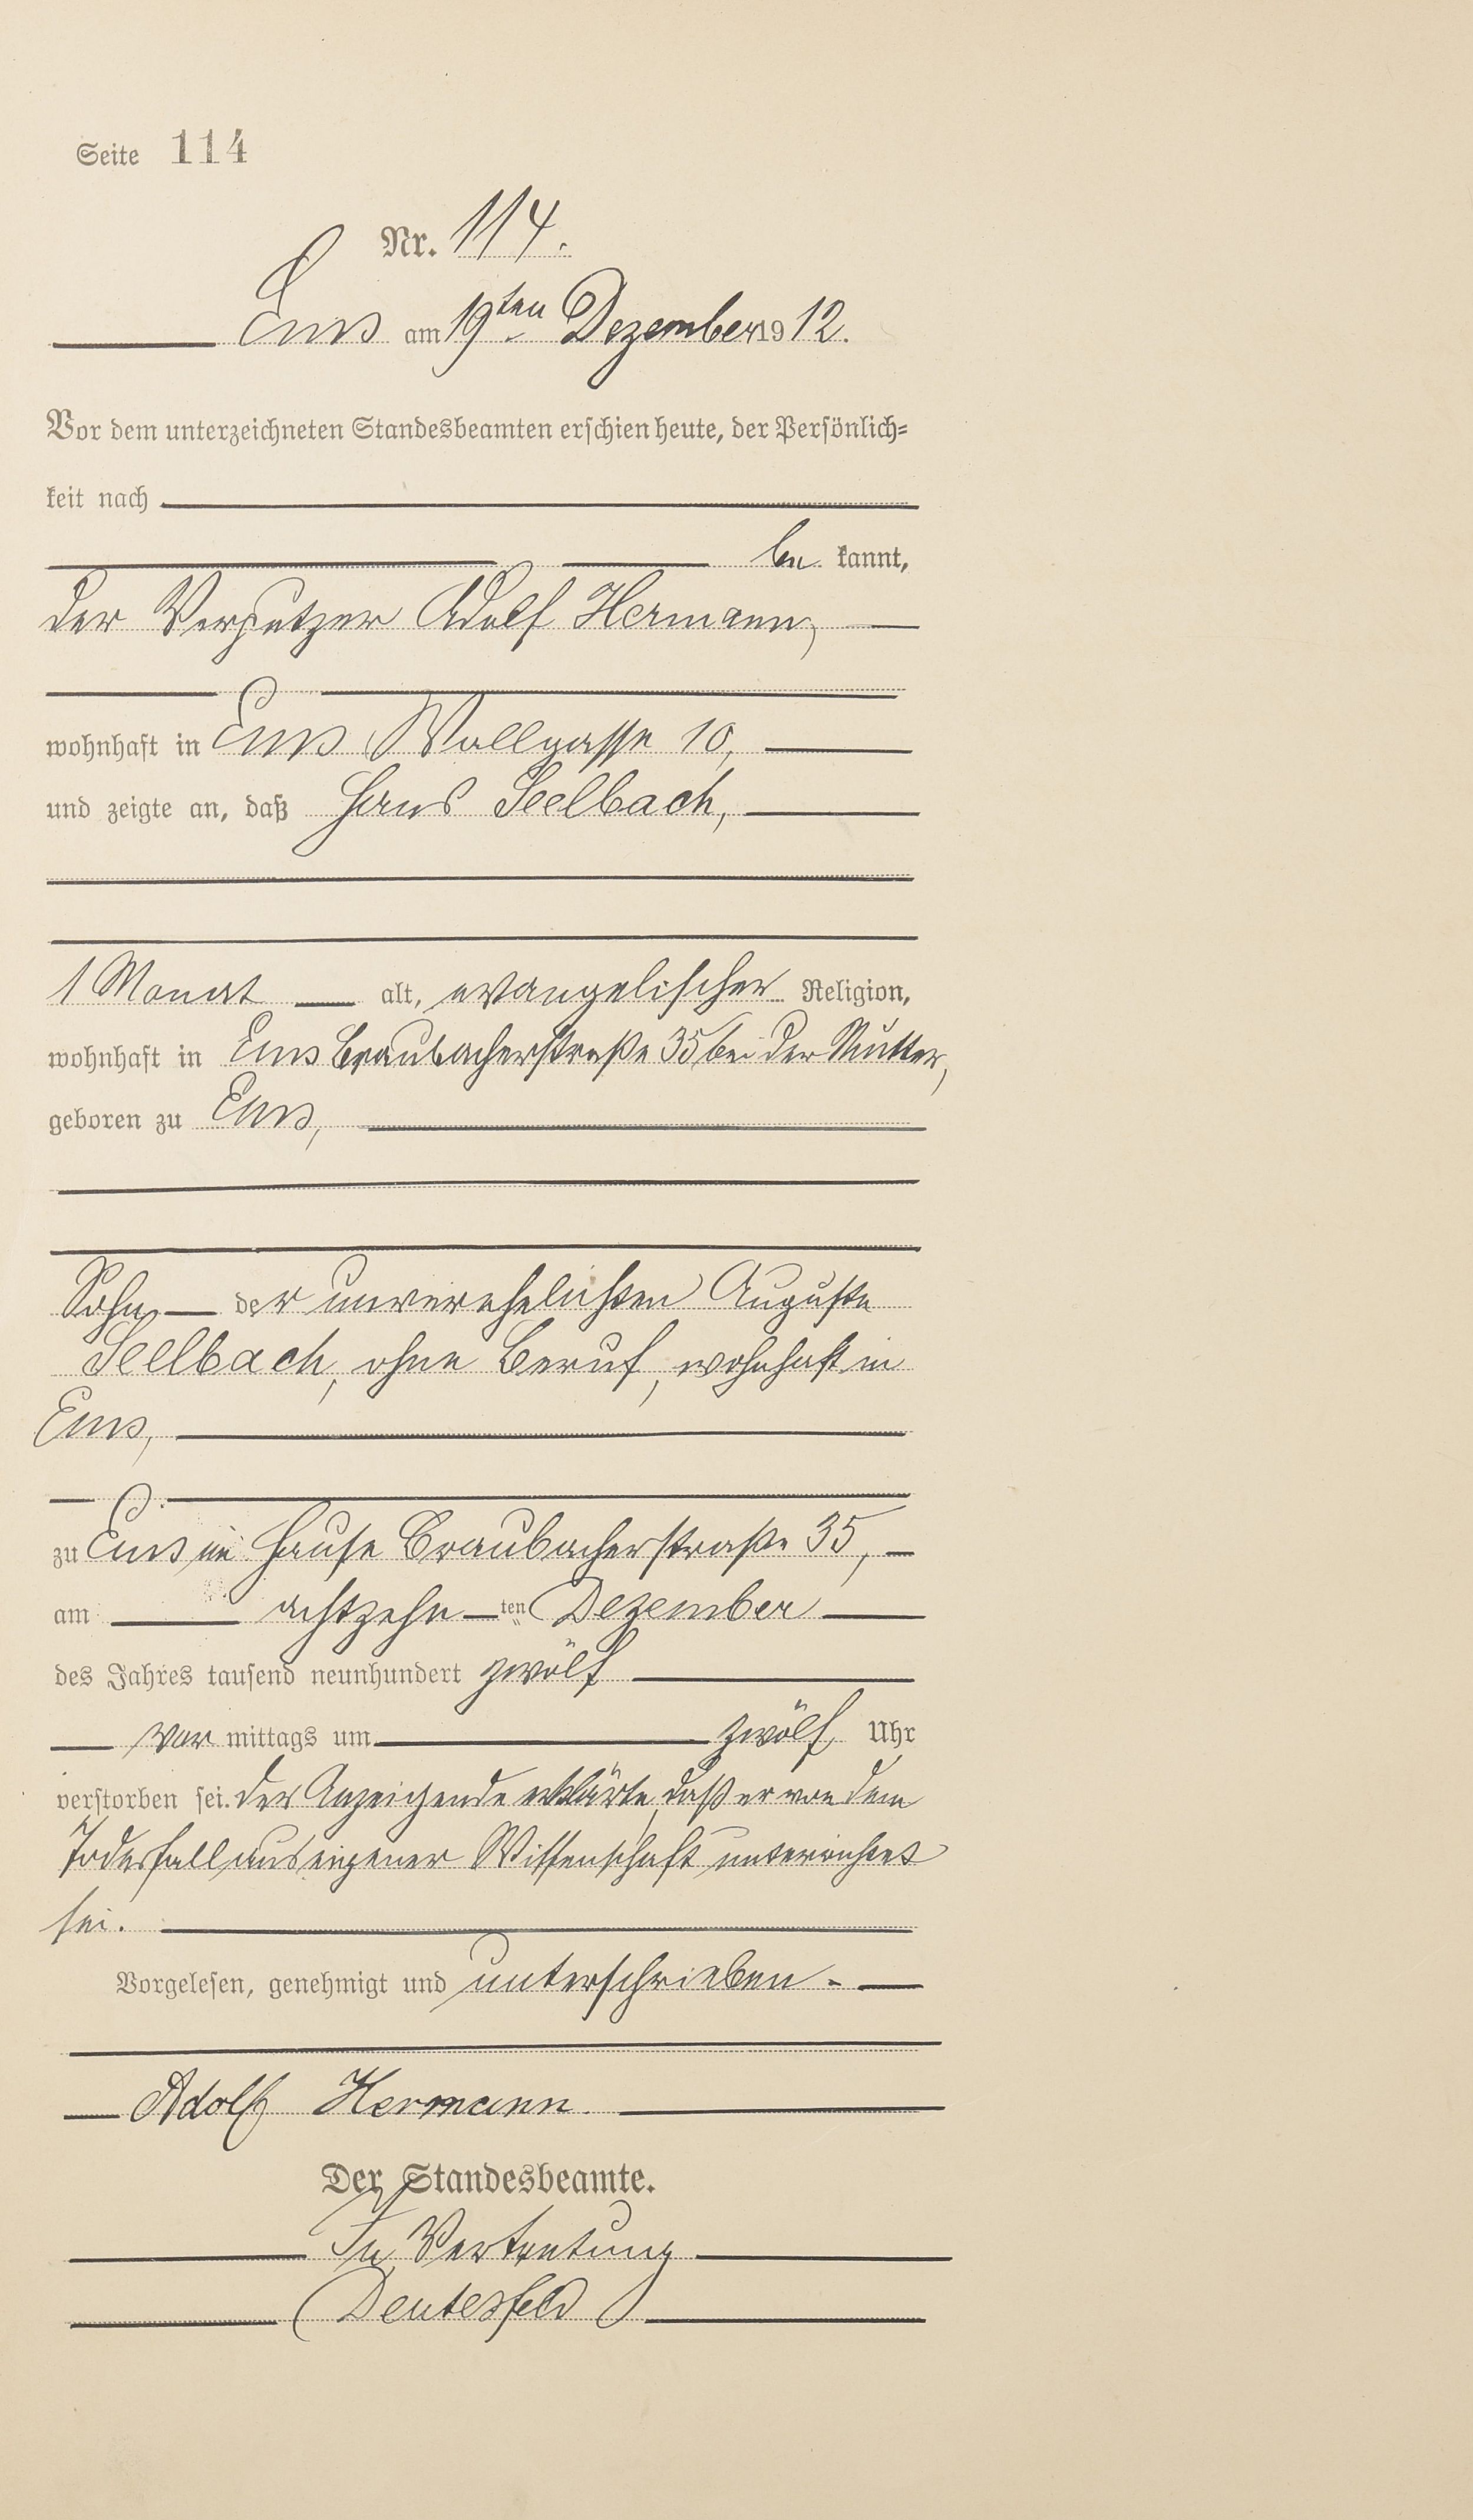 Seite 114
Nr. 114.
Ems am 19ten Dezember 1912.
Vor dem unterzeichneten Standesbeamten erschien heute, der Persönlich-
keit nach
be kannt,
der Verputzer Adolf Hermann,
wohnhaft in Ems, Wallgasse 10,
und zeigte an, daß Hans Seelbach,
1 Monat alt, evangelischer Religion,
wohnhaft in Ems Braubacherstraße 35 bei der Mutter,
geboren zu Ems,
Sohn der unverehelichten Auguste
Seelbach, ohne Beruf, wohnhaft in
Ems,
zu Ems im Hause Braubacherstraße 35,
am achtzehn ten Dezember
des Jahres tausend neunhundert zwölf
vor mittags um zwölf Uhr
verstorben sei. Der Anzeigende erklärte, daß er von dem
Todesfall aus eigener Wissenschaft unterrichtet
sei.
Vorgelesen, genehmigt und unterschrieben.
Adolf Hermann.
Der Standesbeamte.
In Vertretung
Deutesfeld